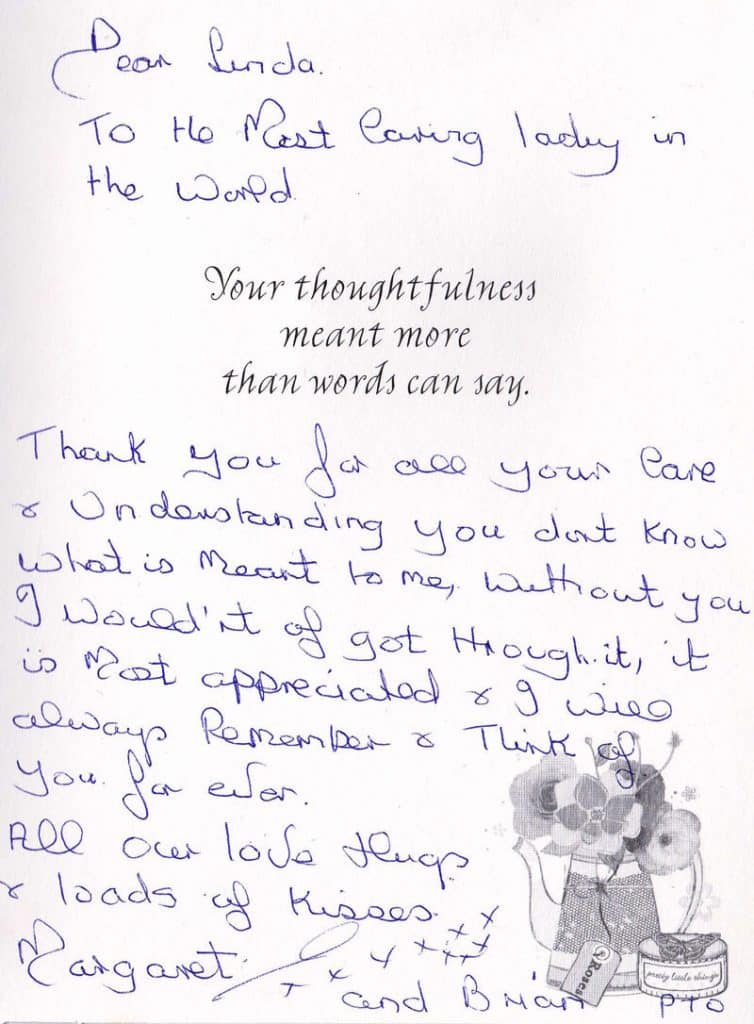 Dear Linda.
To the Most Caring lady in
the World.
Your thoughtfulness
meant more
than words can say.
Thank you for all your Care
& Understanding you dont know
what is Meant to me, without you
I would'nt of got through it, it
is Most appreciated & I will
always Remember & Think of
you for ever.
All our love Hugs
& loads of Kisses
Margaret x x x x x x x x
and Brian PTO
Roses
pretty little things